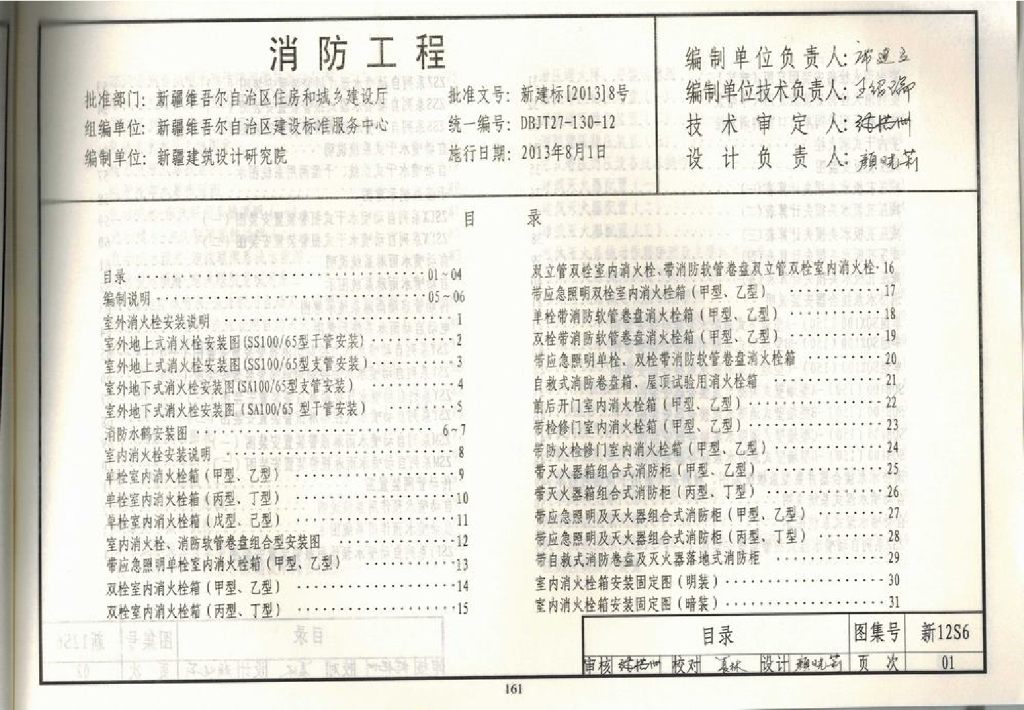 消防工程
批准部门：新疆维吾尔自治区住房和城乡建设厅
组编单位：新疆维吾尔自治区建设标准服务中心
编制单位：新疆建筑设计研究院
批准文号：新建标[2013]8号
统一编号：DBJT27-130-12
施行日期：2013年8月1日
编制单位负责人：
编制单位技术负责人：
技术审定人：
设计负责人：
目 录
目录 ········ 01~04
编制说明 ········ 05~06
室外消火栓安装说明 ········ 1
室外地上式消火栓安装图(SS100/65型干管安装) ········ 2
室外地上式消火栓安装图(SS100/65型支管安装) ········ 3
室外地下式消火栓安装图(SA100/65型支管安装) ········ 4
室外地下式消火栓安装图(SA100/65 型干管安装) ········ 5
消防水鹤安装图 ········ 6~7
室内消火栓安装说明 ········ 8
单栓室内消火栓箱(甲型、乙型) ········ 9
单栓室内消火栓箱(丙型、丁型) ········ 10
单栓室内消火栓箱(戊型、己型) ········ 11
室内消火栓、消防软管卷盘组合型安装图 ········ 12
带应急照明单栓室内消火栓箱(甲型、乙型) ········ 13
双栓室内消火栓箱(甲型、乙型) ········ 14
双栓室内消火栓箱(丙型、丁型) ········ 15
双立管双栓室内消火栓、带消防软管卷盘双立管双栓室内消火栓·16
带应急照明双栓室内消火栓箱(甲型、乙型) ········ 17
单栓带消防软管卷盘消火栓箱(甲型、乙型) ········ 18
双栓带消防软管卷盘消火栓箱(甲型、乙型) ········ 19
带应急照明单栓、双栓带消防软管卷盘消火栓箱 ········ 20
自救式消防卷盘箱、屋顶试验用消火栓箱 ········ 21
前后开门室内消火栓箱(甲型、乙型) ········ 22
带检修门室内消火栓箱(甲型、乙型) ········ 23
带防火检修门室内消火栓箱(甲型、乙型) ········ 24
带灭火器箱组合式消防柜(甲型、乙型) ········ 25
带灭火器箱组合式消防柜(丙型、丁型) ········ 26
带应急照明及灭火器组合式消防柜(甲型、乙型) ········ 27
带应急照明及灭火器组合式消防柜(丙型、丁型) ········ 28
带自救式消防卷盘及灭火器落地式消防柜 ········ 29
室内消火栓箱安装固定图(明装) ········ 30
室内消火栓箱安装固定图(暗装) ········ 31
目录 图集号 新12S6
审核 校对 设计 页 次 01
161